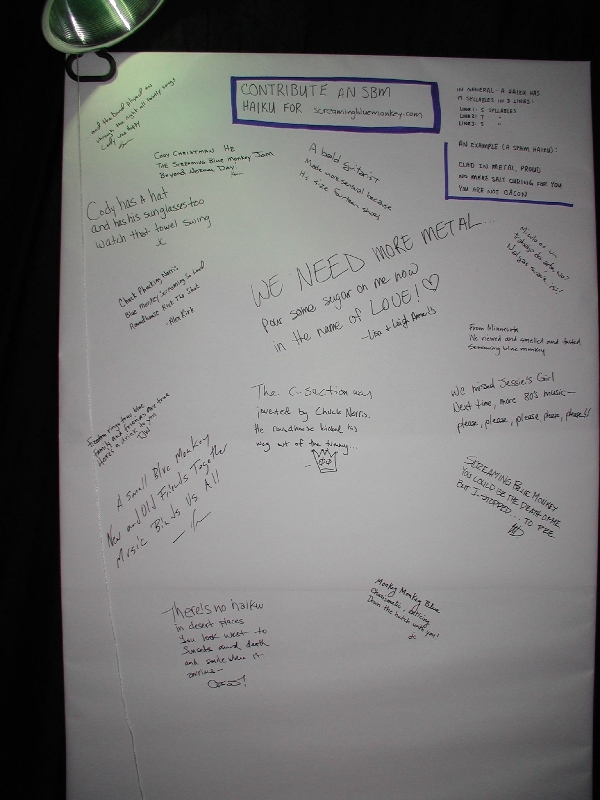 CONTRIBUTE AN SBM
HAIKU FOR screamingbluemonkey.com
IN GENERAL - A HAIKU HAS
17 SYLLABLES IN 3 LINES:
LINE 1: 5 SYLLABLES
LINE 2: 7 "
LINE 3: 5 "
AN EXAMPLE (A SPAM HAIKU):
CLAD IN METAL, PROUD
NO MERE SALT CURING FOR YOU
YOU ARE NOT BACON
and the band played on
through the night all lovely songs
Cody was happy
Cody Christman He
The Screaming Blue Monkey Jam
Beyond Normal Day
A bold guitarist
Made more sensual because
His size fourteen shoes
Cody has A hat
and has his sunglasses too
watch that towel swing
WE NEED MORE METAL...
Pour some sugar on me now
in the name of LOVE!
Chuck Norris
Blue monkey Screaming So Loud
Roundhouse Kick The Shot
-Alex Kirk
From Minnesota
We viewed and smelled and tasted
Screaming blue monkey
We missed Jessie's Girl
Next time, more 80's music—
please, please, please, please, please!!
The C-Section was
invented by Chuck Norris.
He roundhouse kicked his
way out of the tummy...
family and friends are true
Here's a drink to you
A Small Blue Monkey
New and Old Friends Together
Music Binds Us All
SCREAMING BLUE MONKEY
YOU COULD BE THE DEATH OF ME
BUT I STOPPED... TO PEE
Monkey Monkey Blue
Charismatic, enticing
Down the hatch with you!
There's no haiku
in desert places
You look west to
Sunsets and death
and smile when it
arrives—